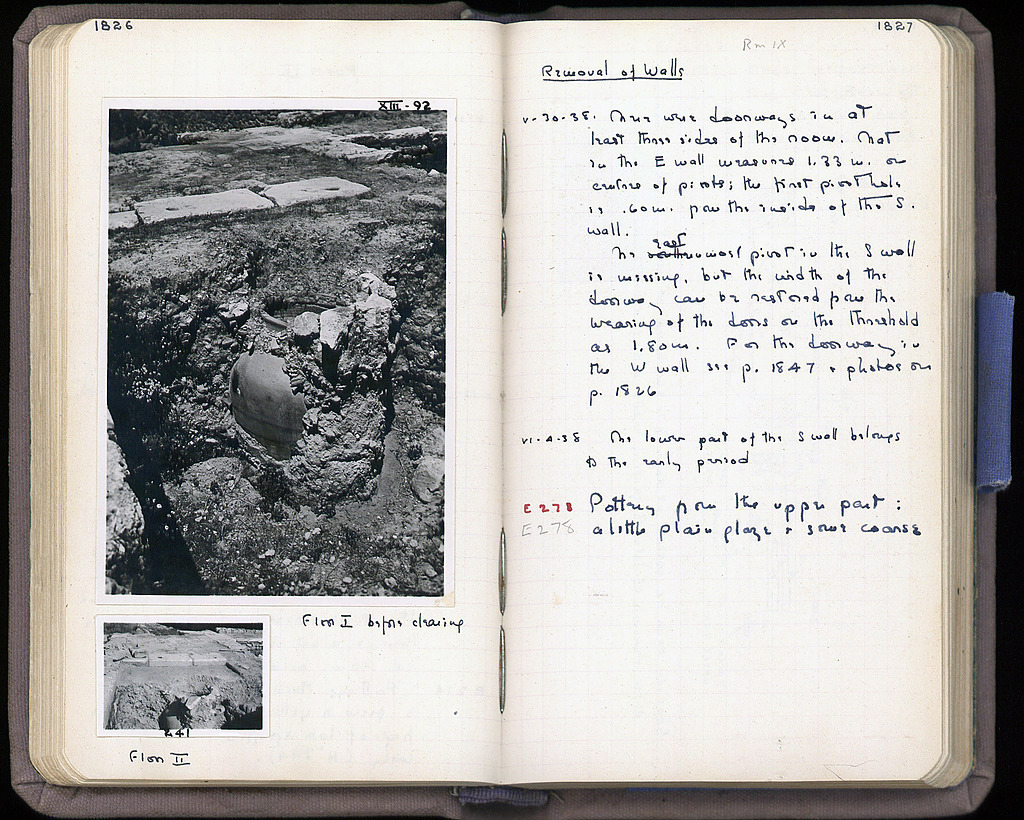 1826
XIII-92
Floor I before clearing
241
Floor II
1827
Rm IX
Removal of Walls
V-30-38. There were doorways in at
least three sides of the room. That
in the E wall measures 1.33 m. on
centres of pivots; the first pivot hole
is .60m. from the inside of the S.
wall.
east
The most pivot in the S wall
is missing, but the width of the
doorway can be restored from the
wearing of the doors on the threshold
as 1.80m. For the doorway in
the W wall see p. 1847 + photos on
p. 1826
VI-4-38 The lower part of the S wall belongs
to the early period
E 278 Pottery from the upper part:
E 278 a little plain glaze + some coarse